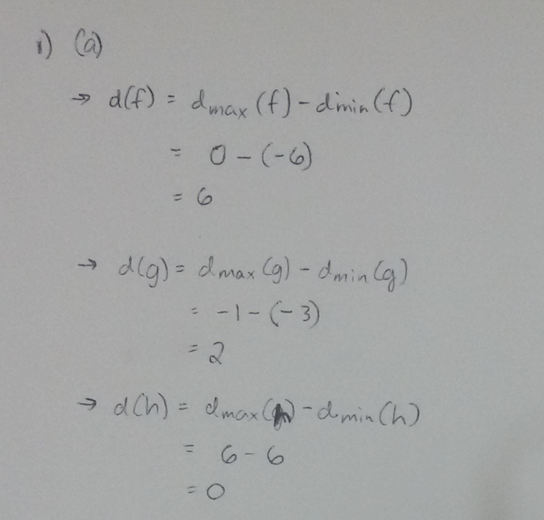 1) (a)
→ d(f) = dmax(f) - dmin(f)
= 0 - (-6)
= 6
→ d(g) = dmax(g) - dmin(g)
= -1 - (-3)
= 2
→ d(h) = dmax(h) - dmin(h)
= 6 - 6
= 0